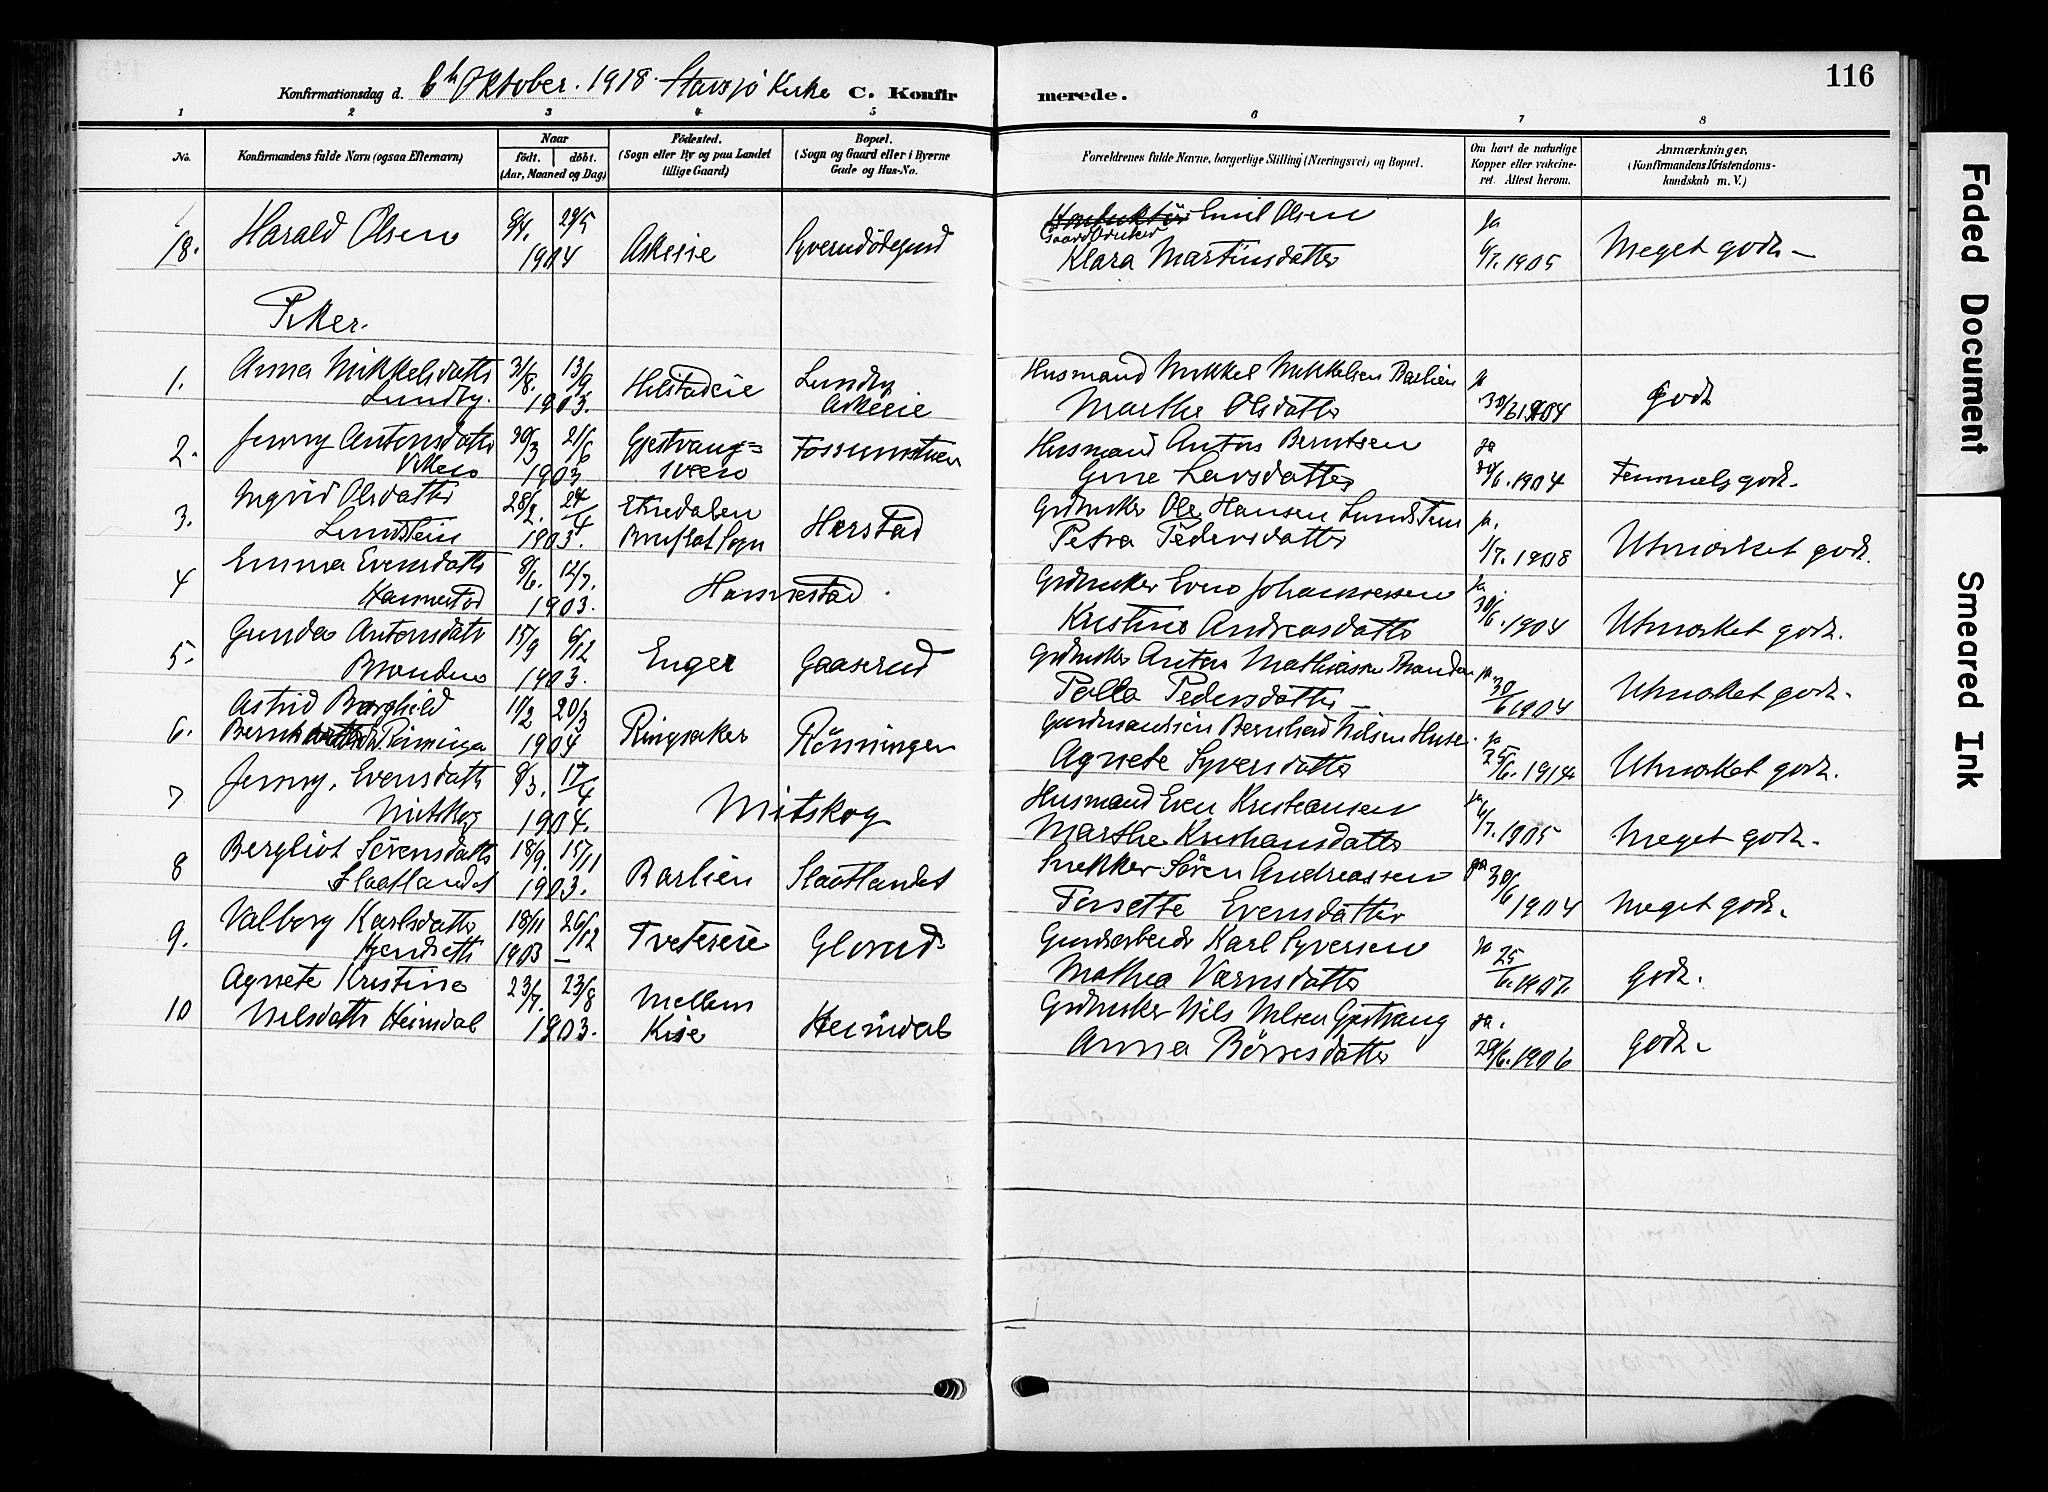 116
Konfirmationsdag d. 6te Oktober. 1918. Stavsjø Kirke C. Konfirmerede.
1 2 3 4 5 6 7 8
No. Konfirmandens fulde Navn (ogsaa Efternavn) Naar født. døbt. (Aar, Maaned og Dag) Fødested. (Sogn eller By og paa Landet tillige Gaard) Bopæl. (Sogn og Gaard eller i Byerne Gade og Hus-No. Forældrenes fulde Navne, borgerlige Stilling (Næringsvei) og Bopæl. Om havt de naturlige Kopper eller vakcineret. Attest herom. Anmærkninger, (Konfirmandens Kristendomskundskab m. V.)
18. Harald Olsen 9/4. 29/5 1904 Askeie Emil Olsen Ja
Gaardbruker Klara Martinsdatter 6/7. 1905 Meget godt –
Piker.
1. Anna Mikkelsdatter 31/8. 13/9 Lundby Husmand Mikkel Mikkelsen Barlien ja
Lundby. 1903. Hilstadeie Askeeie Marthe Olsdatter 30/6 1904 godt
2. Jenny Antonsdatter 30/3 21/6 Gjestvang= Husmand Anton Berntsen ja
Viken 1903 viken Gine Larsdatter 30/6. 1904 Temmelig godt.
3. Ingrid Olsdatter 28/2. 24/4 Etnedalen Grdbruker Ole Hansen Lundstein ja.
Lundstein 1903. Bruflat Sogn Harstad Petra Pedersdatter 1/7. 1908 Utmerket godt.
4 Emma Evensdatter 8/6. 12/7. Grdbruker Even Johannessen Ja.
Hamnestad 1903. Hamnestad. Kristine Andreasdatter 30/6. 1904 Utmerket godt.
5. Gunda Antonsdatr 15/9 6/12 Grdbruker Anton Mathiassen Branden ja
Branden 1903. Enger Gaaserud Pedersdatter – 30/6 1904 Utmerket godt.
6. Astrid Borghild 11/2 20/3 Gardmandssøn Bernhard Nilsen Huse ja
1904 Ringsaker Rönningen Agnete Syversdatter 25/6. 1914 Utmerket godt.
7 Jenny. Evensdatter 8/3. 17/4 Husmand Even Kristiansen Ja
Mitskog 1904. Mitskog Marthe Kristiansdatter 6/7. 1905 Meget godt.
8 Bergliot Sörensdatter 18/9. 15/11 Snekker Sören Andreassen ja
Slaatlandet 1903. Barlien Slaatlandet Evensdatter 30/6 1904 Meget godt.
9. Valborg Karlsdatter 18/11 26/12 Gardsarbeider Karl Syversen ja
1903 – Tvetereie Glorud Mathea Varnsdatter 25/6. 1907. godt.
10 Agnete Kristine 23/7. 23/8 Mellem Grdbruker Nils Nilsen Gjestvang ja.
Nilsdatter Heimdal 1903. Kise Heimdal Anna Börresdatter 29/6. 1906 godt.
Faded Document
Smeared Ink